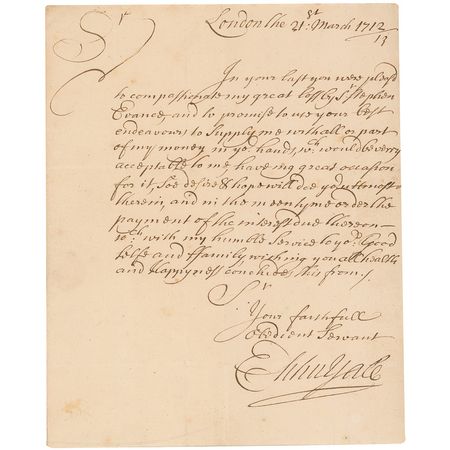 Sr
London the 21st: March 1712/13
In your last you were pleasd
to compassionate my great loss by Sr Stephen
Evance, and to promise to use your best
endeavours to Supply me with all or part
of my money in yor. hands, wch. would be very
acceptable to me, having great occasion
for it, So I desire & hope will doe your utmost
therein, and in the meentyme order the
payment of the interest due thereon
wch. with my humble Service to yor. Good
Selfe and ffamily wishing you all health
and Happyness concludes this from
Sr
Your faithfull
obedient Servant
Elihu Yale